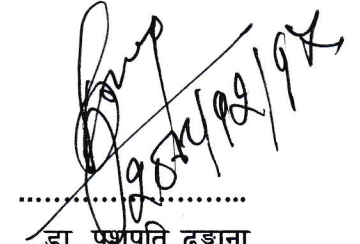 २०७५/१२/१७
डा. पशुपति ढुङ्गाना